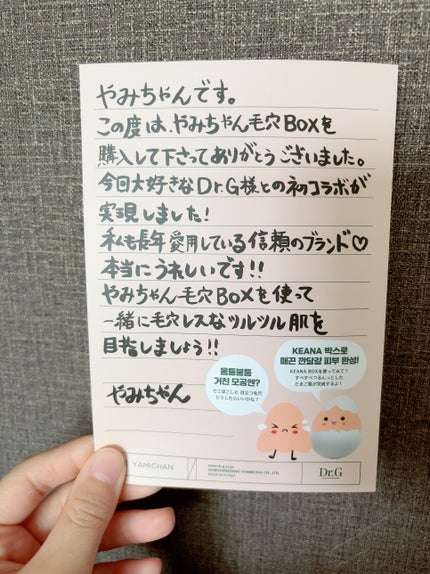 やみちゃんです。
この度は、やみちゃん毛穴BOXを
購入して下さってありがとうございました。
今回大好きなDr.G様との初コラボが
実現しました!
私も長年愛用している信頼のブランド♡
本当にうれしいです!!
やみちゃん毛穴BOXを使って
一緒に毛穴レスなツルツル肌を
目指しましょう!!
やみちゃん
울퉁불퉁
거친 모공엔?
でこぼこした目立つ毛穴
どうしたらいいかな?
KEANA 박스로
매끈 깐달걀 피부 완성!
KEANA BOXを使ってみて!
すべすべつるんっとした
たまご肌が完成するよ!
YAMICHAN
Dr.G